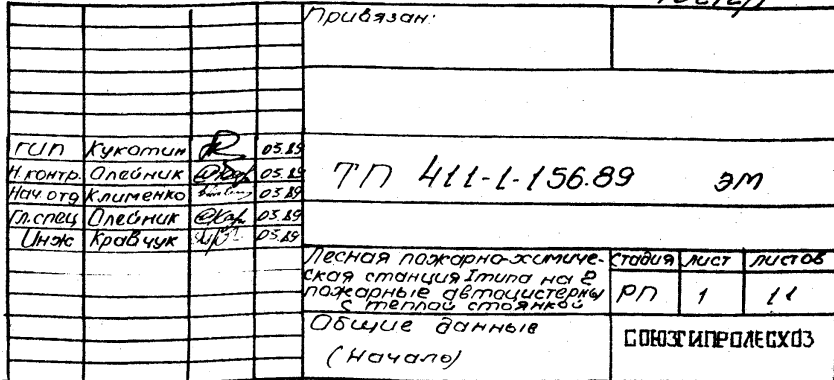 Привязан:
ГИП Кукотин 05.89
Н.контр. Олейник 05.89
Нач.отд Клименко 05.89
Гл.спец Олейник 05.89
Инж Кравчук 05.89
ТП 411-1-156.89 ЭМ
Лесная пожарно-химиче-
ская станция I типа на 2
пожарные автоцистерны
с теплой стоянкой
Стадия Лист Листов
РП 1 11
Общие данные
(Начало)
СОЮЗГИПРОЛЕСХОЗ